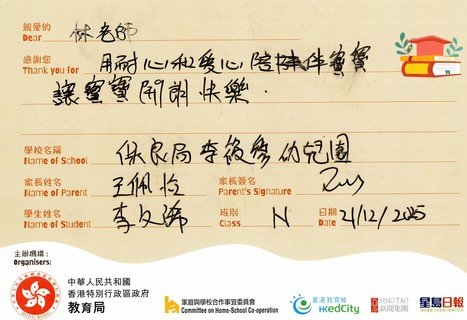 親愛的 林老師
Dear
感謝您 用耐心和愛心陪伴寶寶
Thank you for
讓寶寶開朗快樂.
學校名稱 保良局李俊彥幼兒園
Name of School
家長姓名 王佩怡 家長簽名
Name of Parent Parent's Signature
學生姓名 李文 班別 N 日期 21/12/2025
Name of Student Class Date
主辦機構:
Organisers:
中華人民共和國
香港特別行政區政府
教育局
家庭與學校合作事宜委員會
Committee on Home-School Co-operation
香港教育城
HKedCity
星島 SING TAO
新聞集團
星島日報